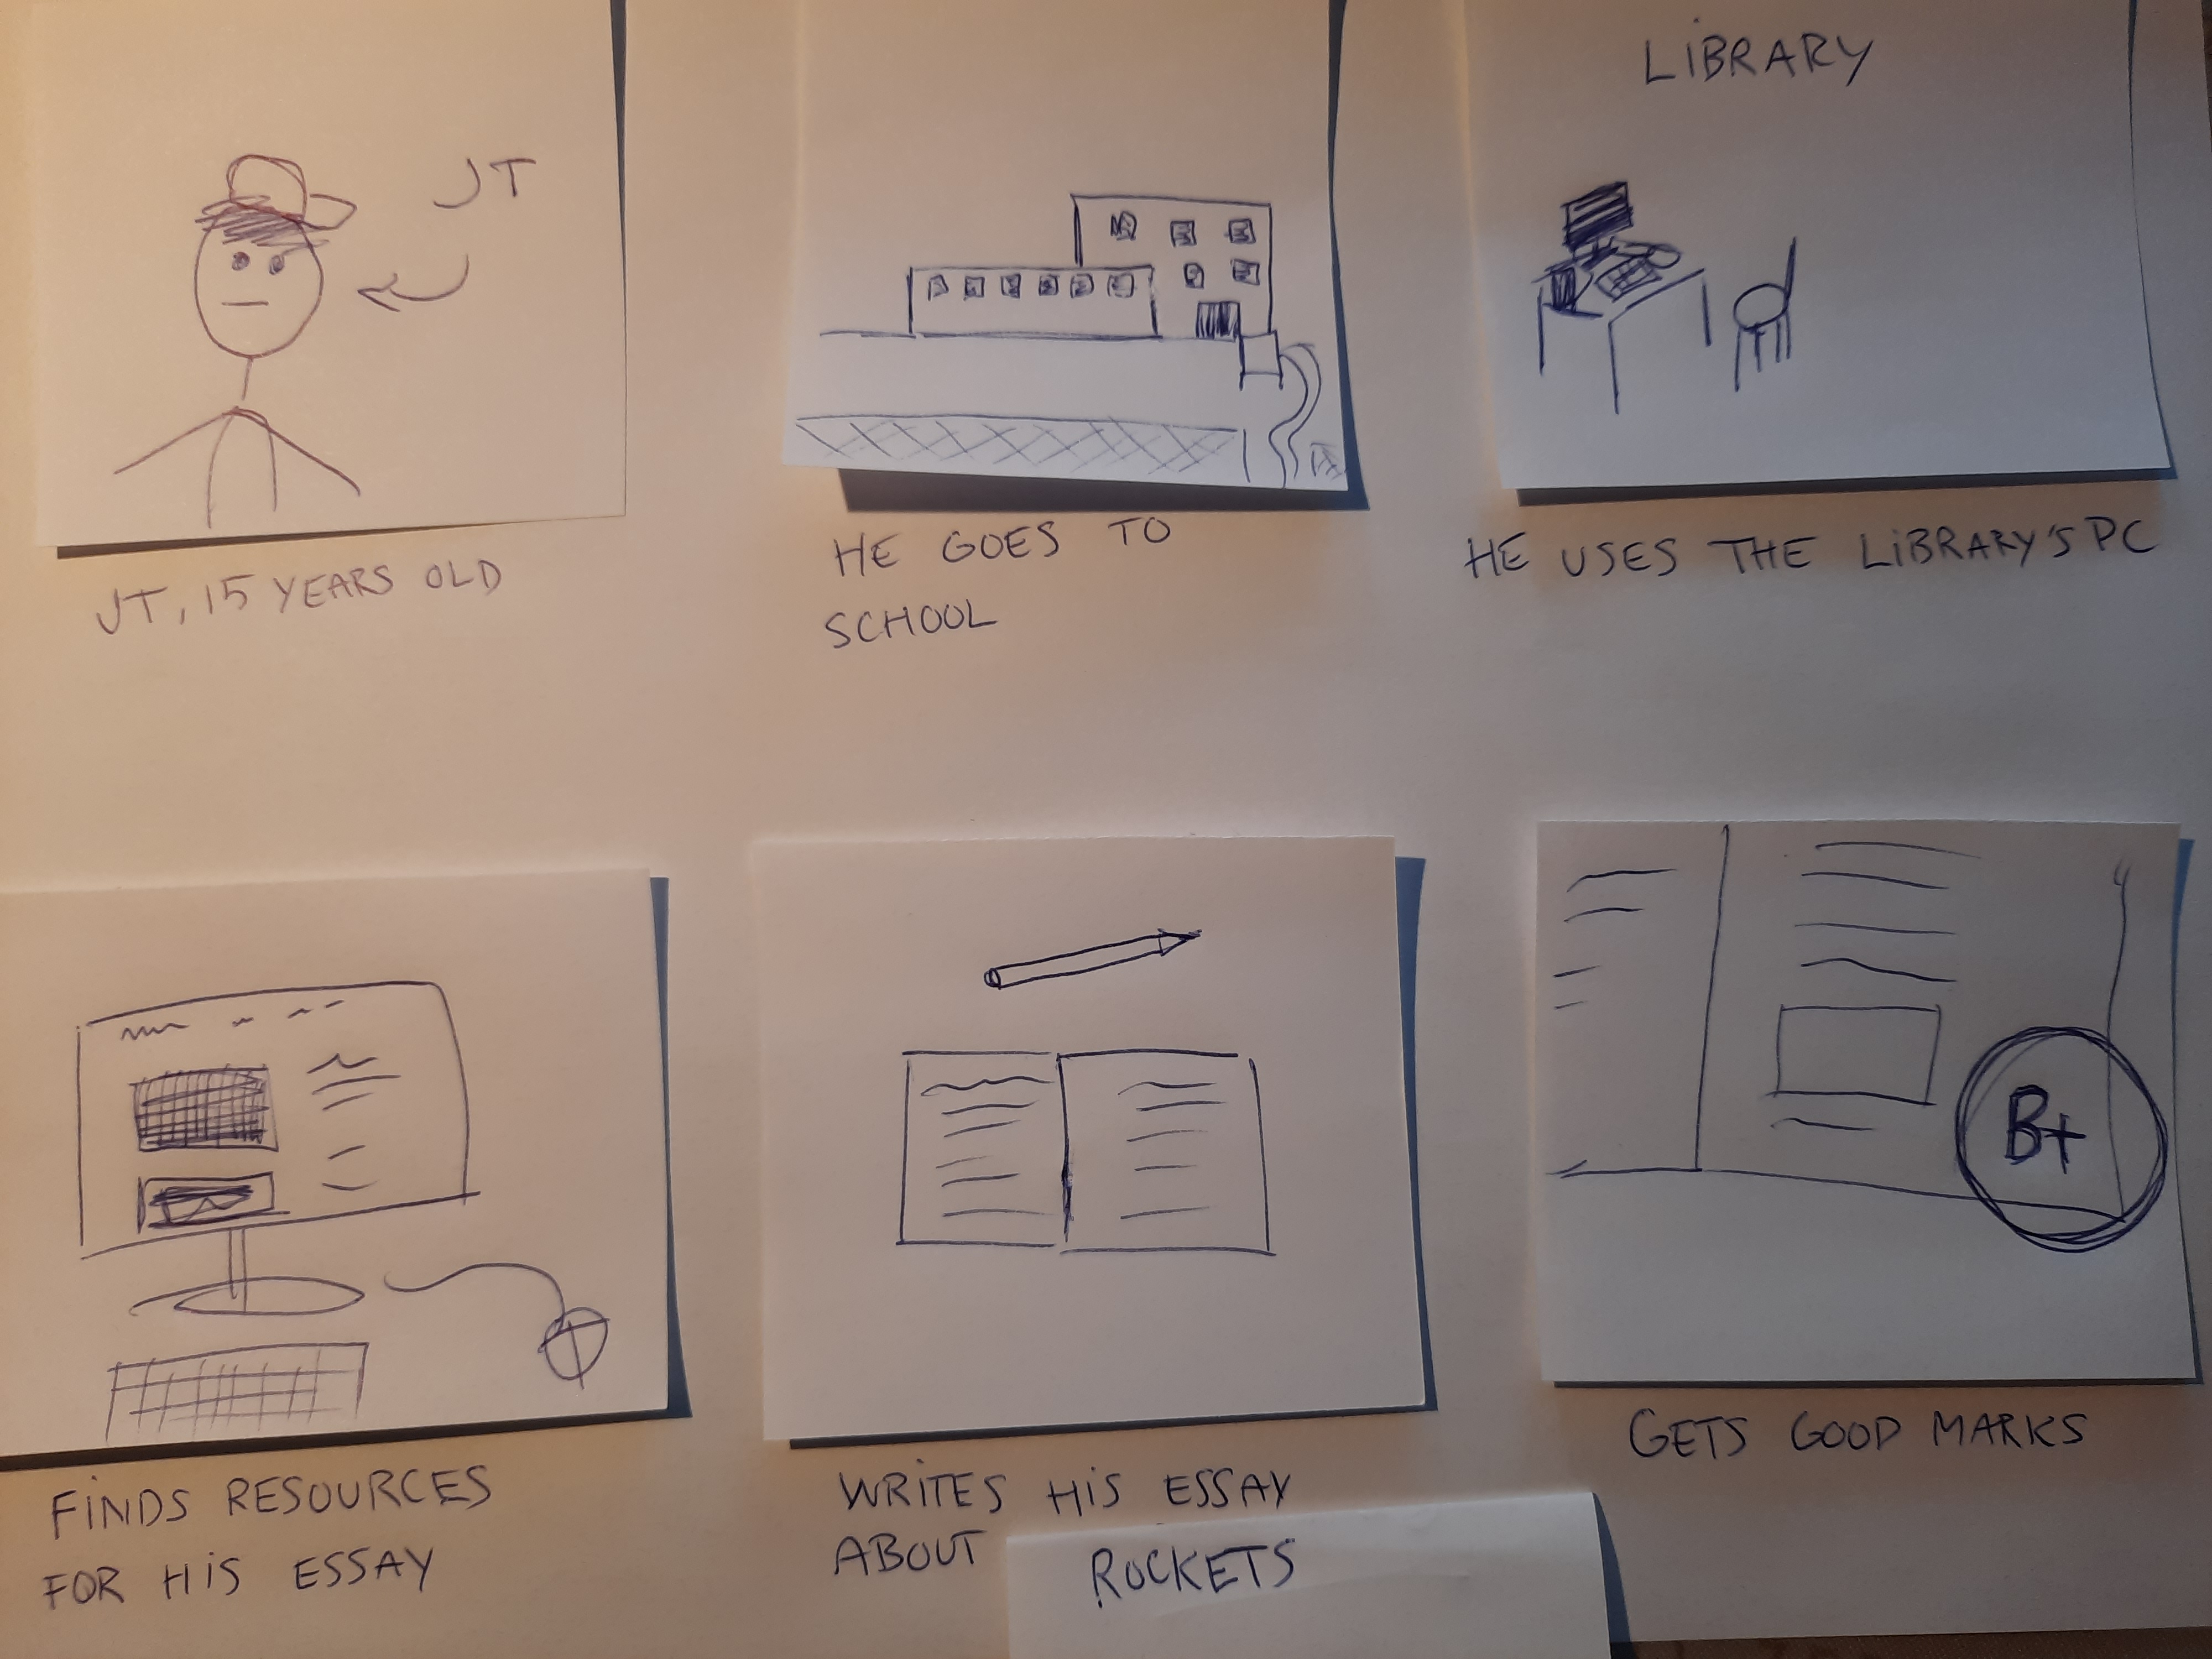 JT
JT, 15 YEARS OLD
HE GOES TO
SCHOOL
LIBRARY
HE USES THE LIBRARY'S PC
FINDS RESOURCES
FOR HIS ESSAY
WRITES HIS ESSAY
ABOUT ROCKETS
B+
GETS GOOD MARKS